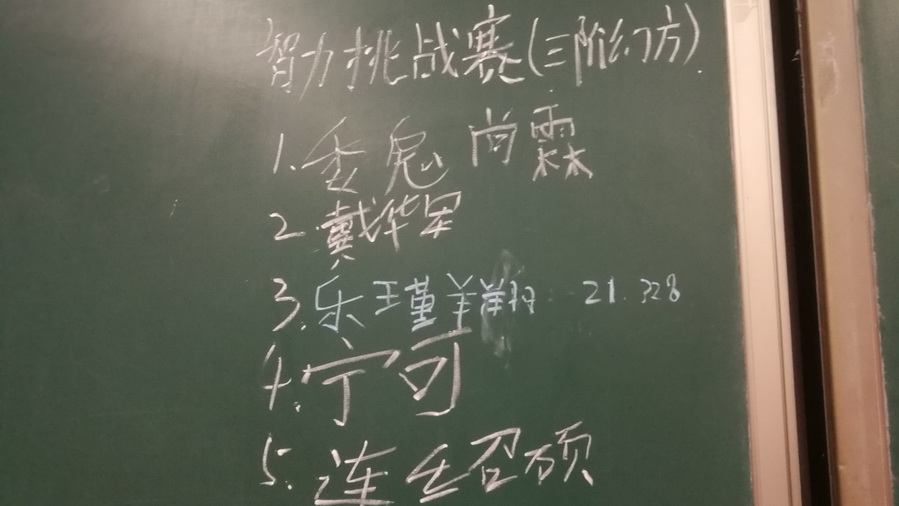 智力挑战赛(三阶幻方)
1.魏尚霖
2.戴华军
3.乐瑾翔 21.328
4.宁可
5.连绍硕